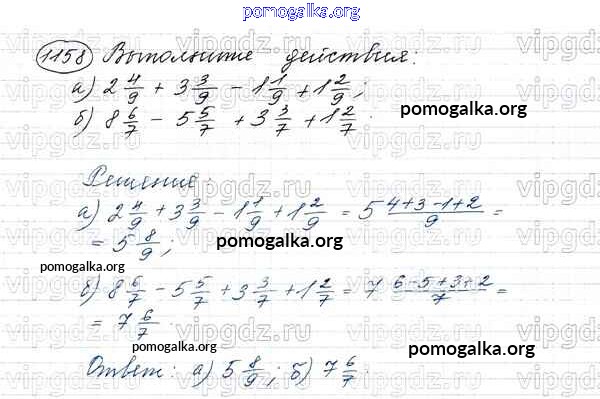 pomogalka.org
1158 Выполните действия:
а) 2 4/9 + 3 3/9 - 1 1/9 + 1 2/9 ;
б) 8 6/7 - 5 5/7 + 3 3/7 + 1 2/7
pomogalka.org
Решение:
а) 2 4/9 + 3 3/9 - 1 1/9 + 1 2/9 = 5 4+3-1+2/9 =
= 5 8/9 ;
pomogalka.org
pomogalka.org
б) 8 6/7 - 5 5/7 + 3 3/7 + 1 2/7 = 7 6-5+3+2/7 =
= 7 6/7
Ответ: а) 5 8/9 ; б) 7 6/7.
pomogalka.org
pomogalka.org
vipgdz.ru
vipgdz.ru
vipgdz.ru
vipgdz.ru
vipgdz.ru
vipgdz.ru